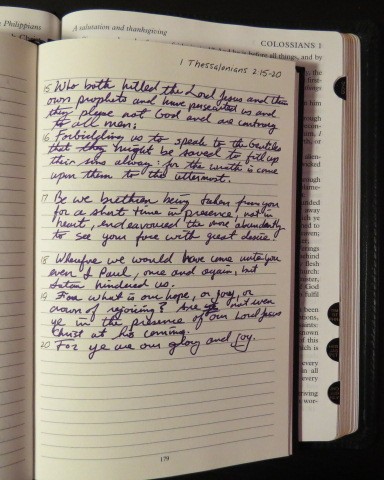 Philippians
A salutation and thanksgiving
COLOSSIANS 1
1 Thessalonians 2:15-20
15 Who both killed the Lord Jesus and their
own prophets and have persecuted us and
they please not God and are contrary
to all men:
16 Forbidding us to speak to the Gentiles
that they might be saved to fill up
their sins alway: for the wrath is come
upon them to the uttermost.
17 Be we brethren being taken from you
for a short time in presence, not in
heart, endeavoured the more abundantly
to see your face with great desire
18 Wherefore we would have come unto you
even I Paul, once and again, but
Satan hindered us.
19 For what is our hope, or joy, or
crown of rejoicing? Are not even
ye in the presence of our Lord Jesus
Christ at his coming.
20 For ye are our glory and joy.
179